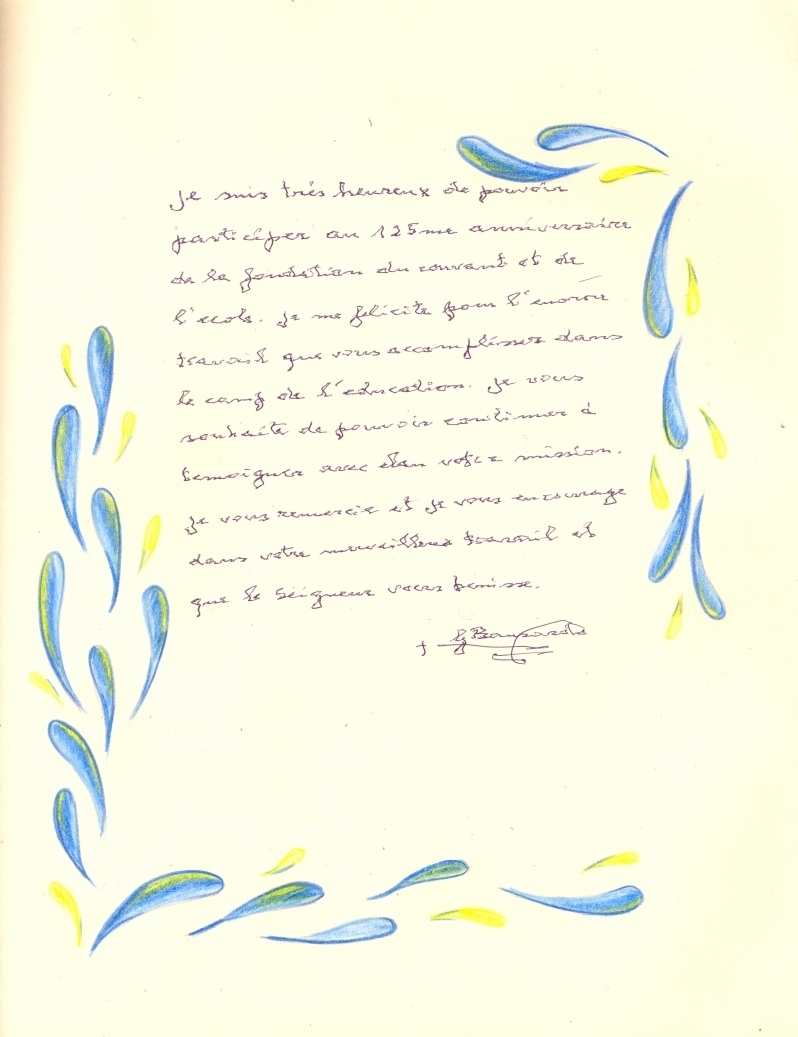 Je suis très heureux de pouvoir
participer au 125me anniversaire
de la fondation du couvant et de
l'ecole. Je me felicite pour l'enorme
travail que vous accomplisser dans
le camp de l'education. Je vous
souhaite de pouvoir continuer à
temoigner avec élan votre mission.
Je vous remercie et je vous encourage
dans votre merveilleux travail et
que le Seigneur vous benisse.
+